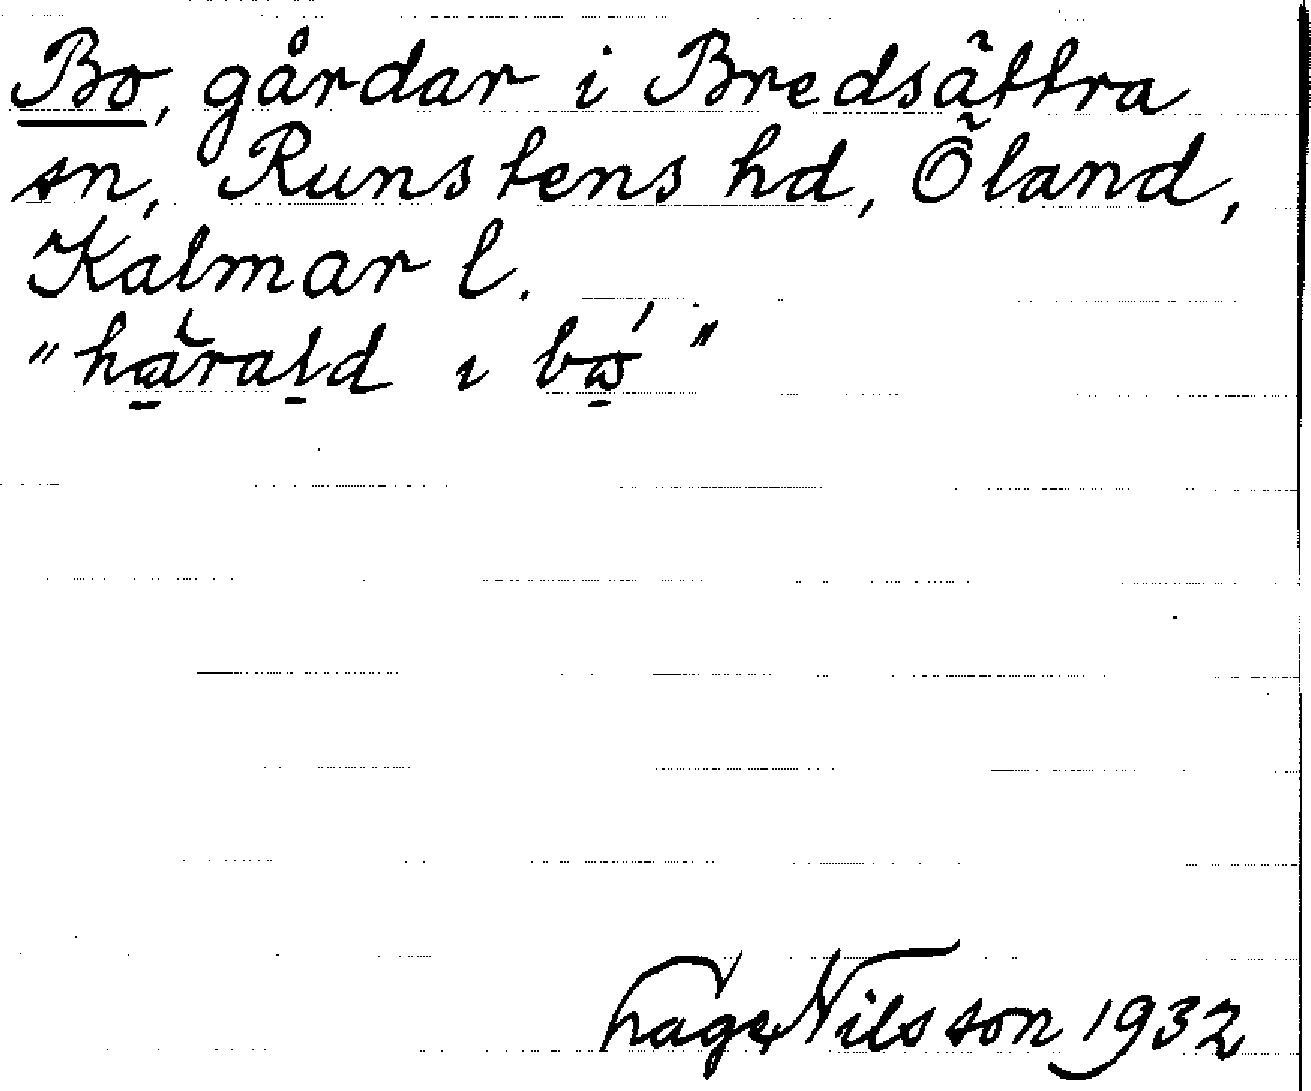 Bo, gårdar i Bredsättra
sn, Runstens hd, Öland,
Kalmar l.
"härald ı bώ"
Tage Nilsson 1932